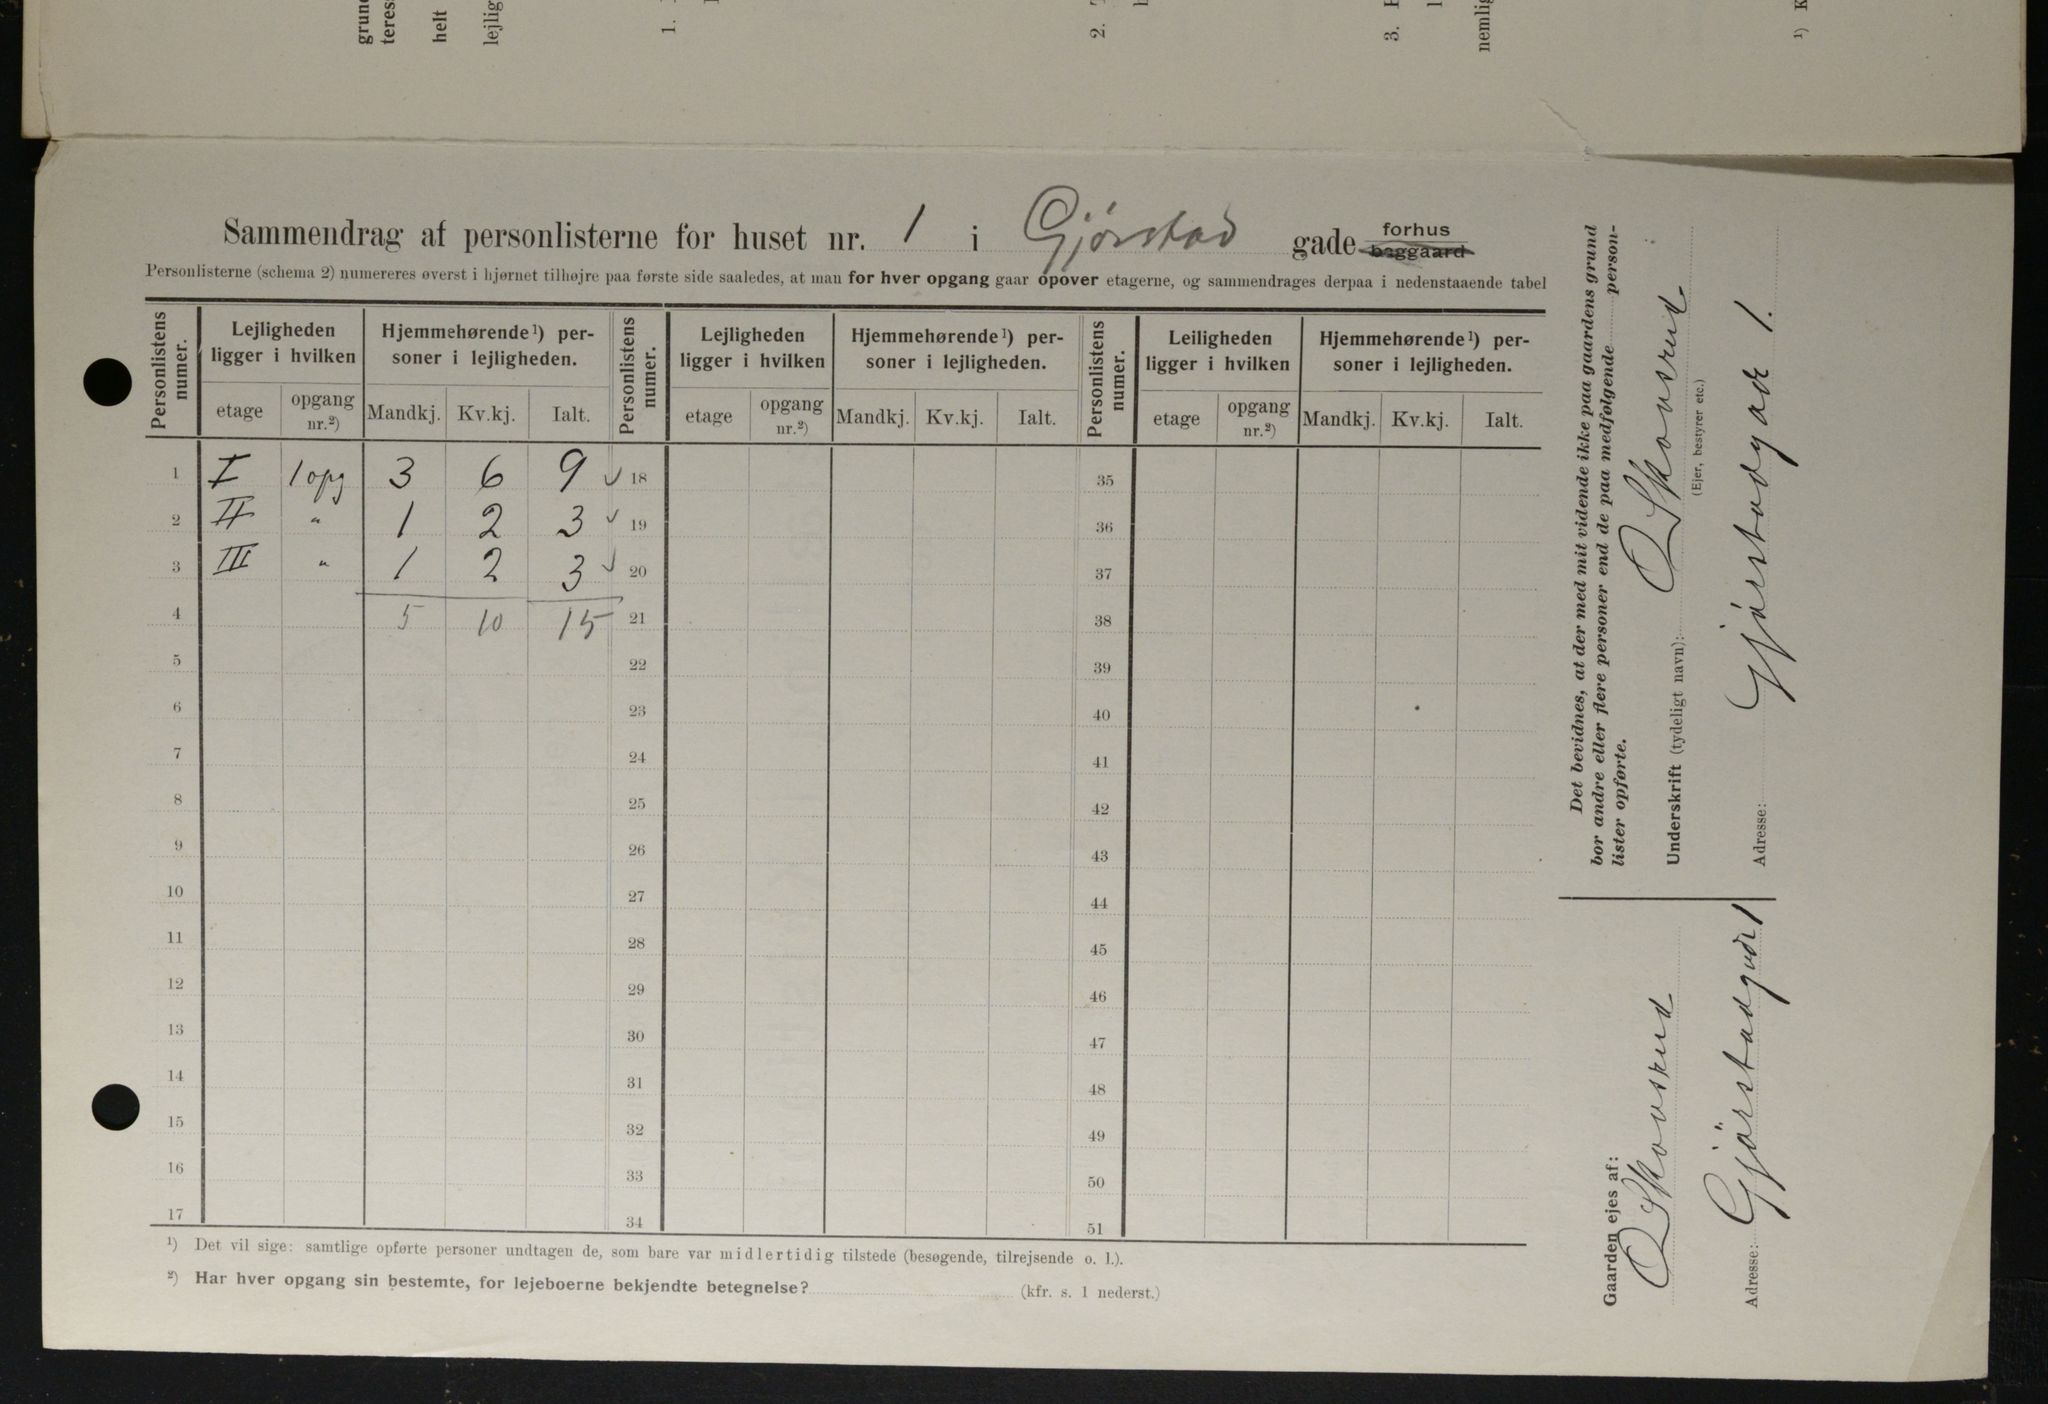 grund
teres
helt
lejlig
1.
2.
3.
nemlig
¹) K
Sammendrag af personlisterne for huset nr. 1 i Gjørstad gade forhus
baggaard
Personlisterne (schema 2) numereres øverst i hjørnet tilhøjre paa første side saaledes, at man for hver opgang gaar opover etagerne, og sammendrages derpaa i nedenstaaende tabel
Personlistens numer. Lejligheden ligger i hvilken Hjemmehørende¹) personer i lejligheden. Personlistens numer. Lejligheden ligger i hvilken Hjemmehørende¹) personer i lejligheden. Personlistens numer. Leiligheden ligger i hvilken Hjemmehørende¹) personer i lejligheden.
etage opgang nr.²) Mandkj. Kv.kj. Ialt. etage opgang nr.²) Mandkj. Kv.kj. Ialt. etage opgang nr.²) Mandkj. Kv.kj. Ialt.
1 I 1 opg 3 6 9 ✓ 18 35
2 II " 1 2 3 ✓ 19 36
3 III " 1 2 3 ✓ 20 37
4 5 10 15 21 38
5 22 39
6 23 40
7 24 41
8 25 42
9 26 43
10 27 44
11 28 45
12 29 46
13 30 47
14 31 48
15 32 49
16 33 50
17 34 51
¹) Det vil sige: samtlige opførte personer undtagen de, som bare var midlertidig tilstede (besøgende, tilrejsende o. l.).
²) Har hver opgang sin bestemte, for lejeboerne bekjendte betegnelse? (kfr. s. 1 nederst.)
Det bevidnes, at der med mit vidende ikke paa gaardens grund
bor andre eller flere personer end de paa medfølgende person-
lister opførte.
Underskrift (tydeligt navn): O Skovsrud
(Ejer, bestyrer etc.)
Adresse: Gjørstadgade 1.
Gaarden ejes af:
O Skovsrud
Adresse: Gjörstadgade 1